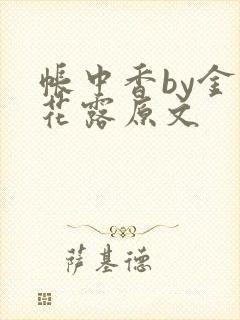 帐中香by金
花露原文
萨基德